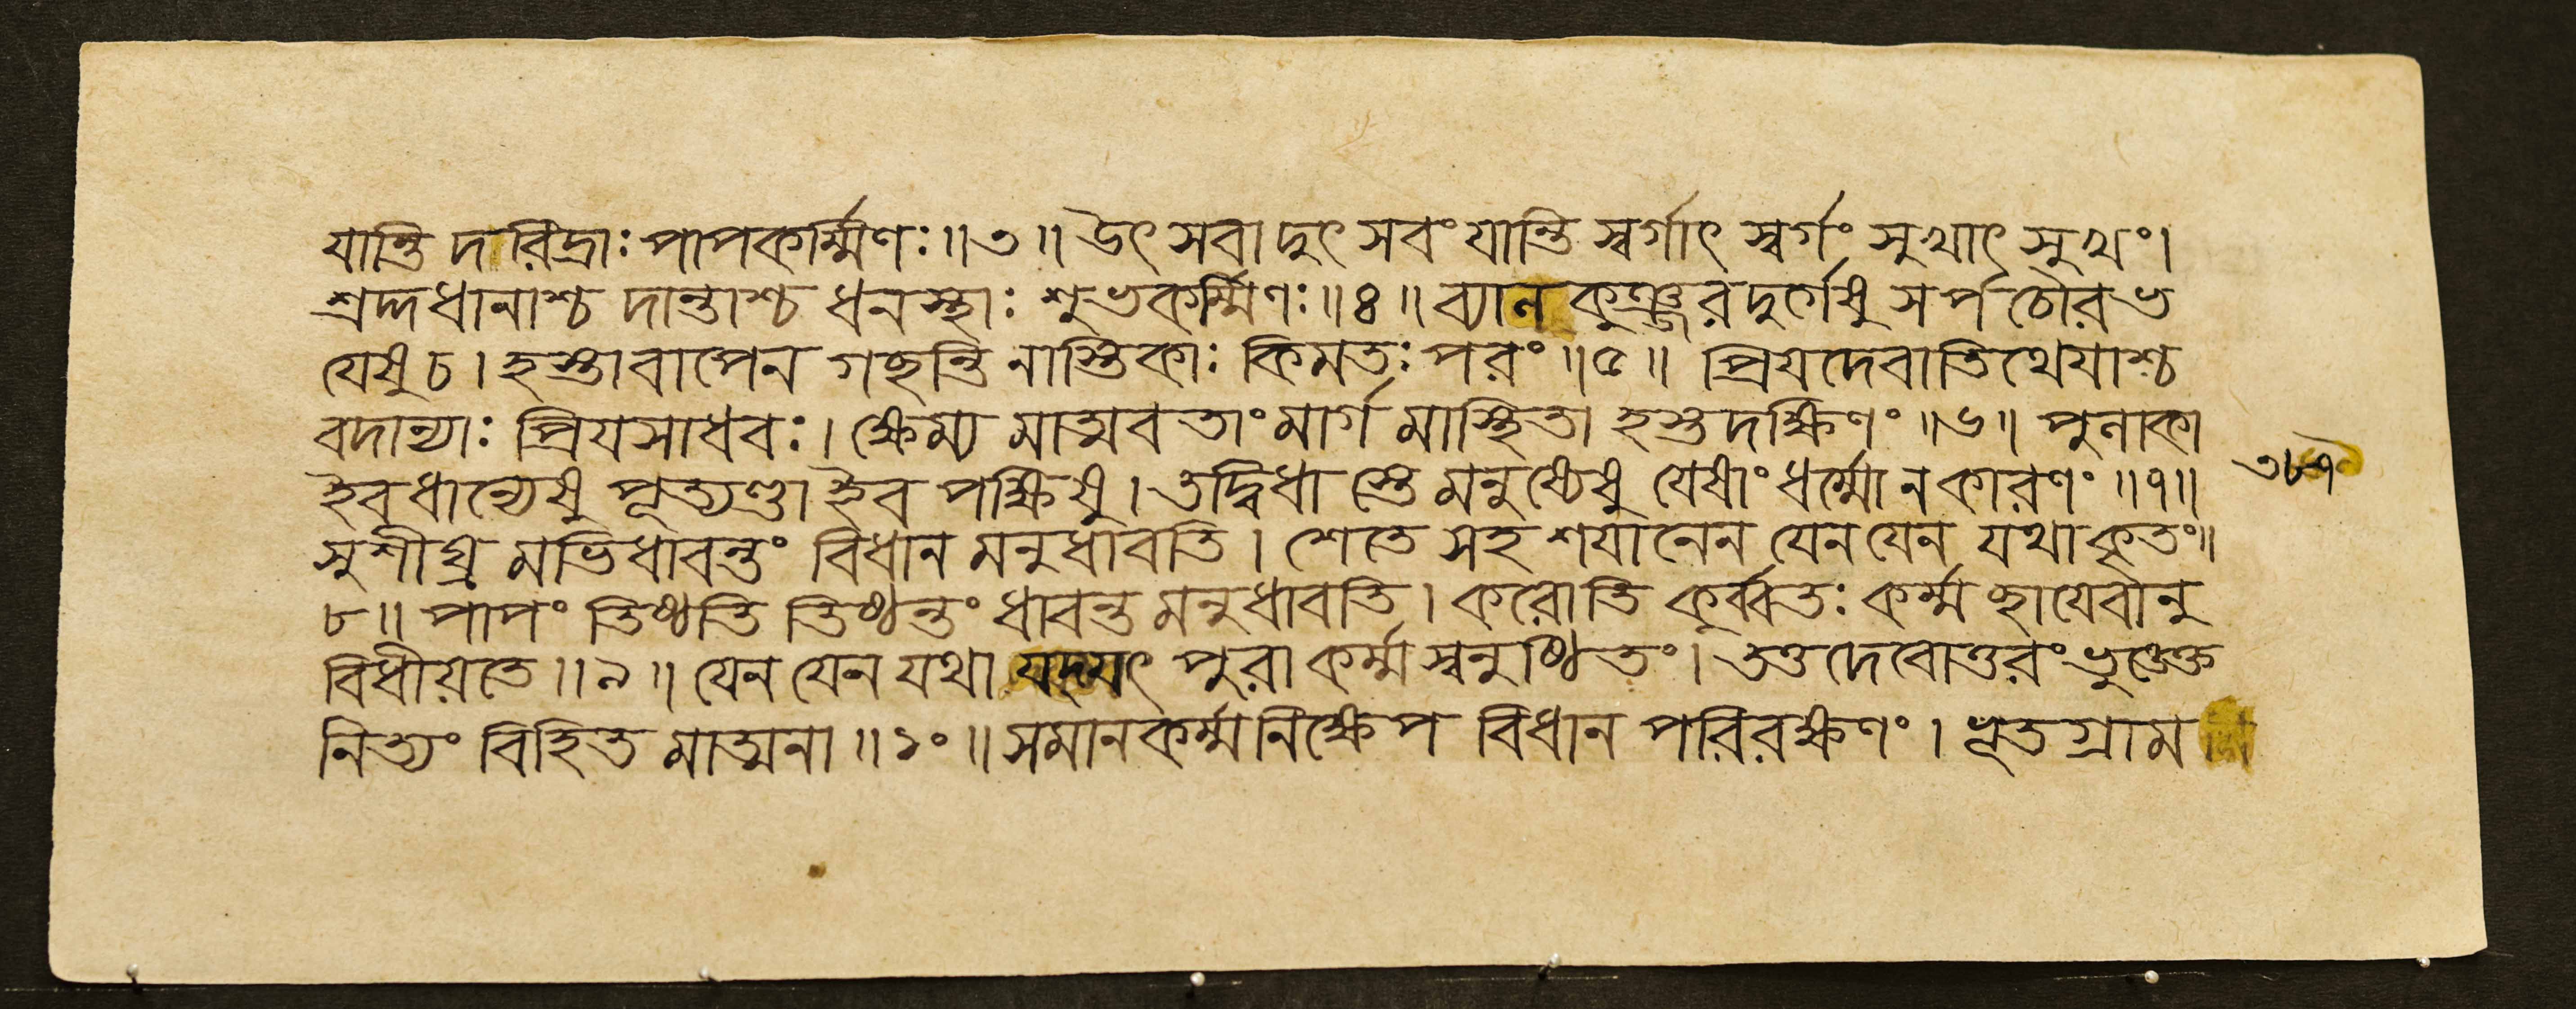 যান্তি দারিদ্রাঃ পাপকর্ম্মিণঃ॥৩॥ উৎসবাদুৎসবং যান্তি স্বর্গাৎ স্বর্গং সুখাৎ সুখং।
শ্রদ্দধানাশ্চ দান্তাশ্চ ধনস্থাঃ শুভকর্ম্মিণঃ॥৪॥ ব্যাল কুঞ্জরদুর্গেষু সর্পচৌরভ
যেষু চ। হস্তাবাপেন গচ্ছন্তি নাস্তিকাঃ কিমতঃ পরং॥৫॥ প্রিযদেবাতিথেযাশ্চ
বদান্যাঃ প্রিযসাধবঃ। ক্ষেম্য মাত্মবতাং মার্গ মাস্থিতা হস্তদক্ষিণং॥৬॥ পুলাকা
ইব ধান্যেষু পূত্যণ্ডা ইব পক্ষিষু। তদ্বিধাস্তে মনুষ্যেষু যেষাং ধর্ম্মো ন কারণং॥৭॥
৩৮৭
সুশীঘ্র মভিধাবন্তং বিধান মনুধাবতি। শেতে সহ শযানেন যেন যেন যথা কৃতং॥
৮॥ পাপং তিষ্ঠতি তিষ্ঠন্তং ধাবন্ত মনুধাবতি। করোতি কুর্ব্বতঃ কর্ম্ম চ্ছাযেবানু
বিধীয়তে॥৯॥ যেন যেন যথা যদ্যৎ পুরা কর্ম্ম স্বনুষ্ঠিতং। তত্তদেবোত্তরং ভুঙ্ক্তে
নিত্যং বিহিত মাত্মনা॥১০॥ সমানকর্ম্মনিক্ষেপ বিধান পরিরক্ষিণং। ভূতগ্রাম